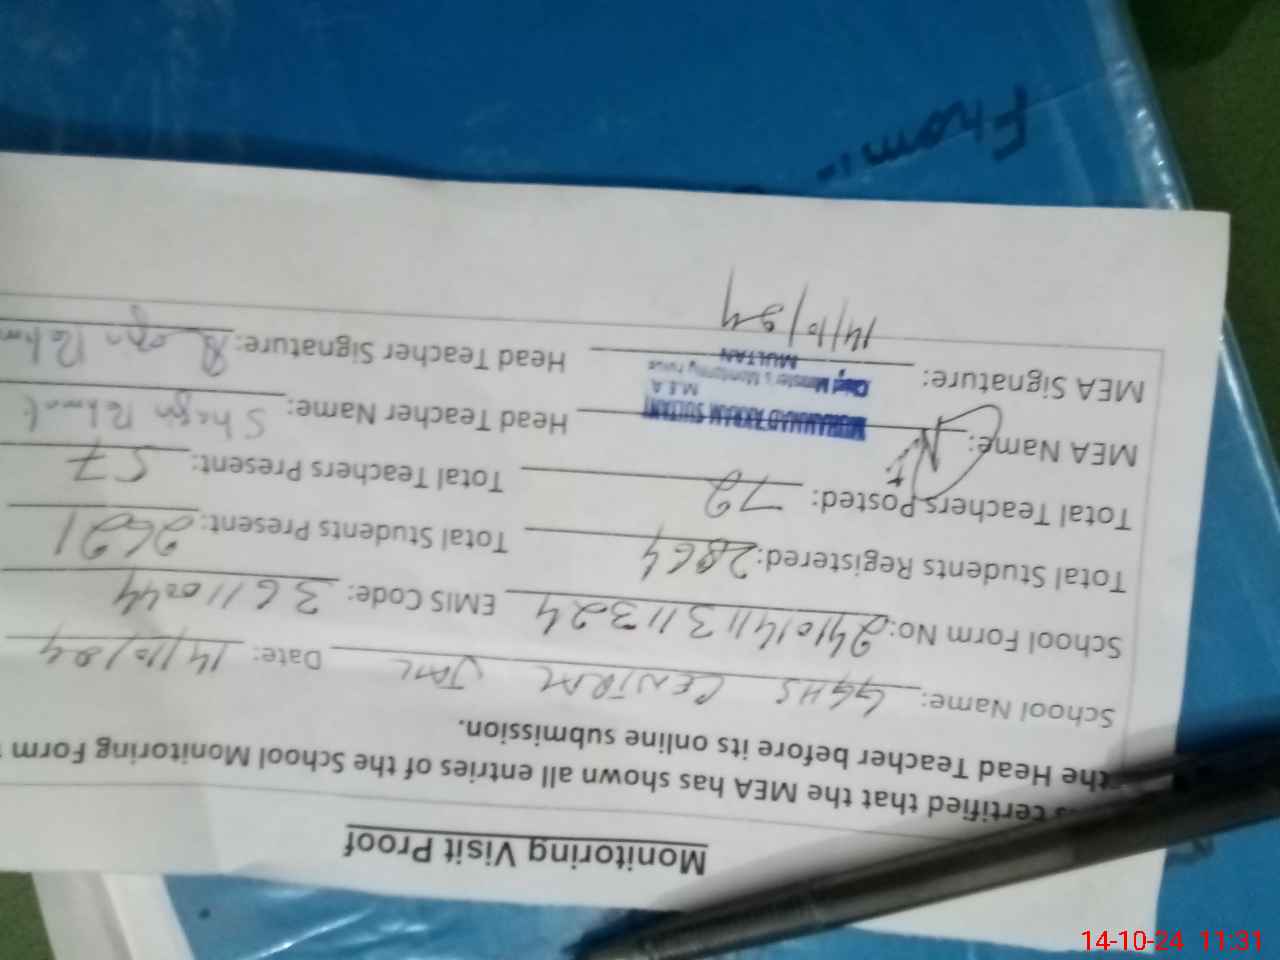 Monitoring Visit Proof
certified that the MEA has shown all entries of the School Monitoring Form
the Head Teacher before its online submission.
School Name: GGHS CENTRAL JAIL Date: 14/10/24
School Form No: 241014113113 24 EMIS Code: 36110244
Total Students Registered: 2864 Total Students Present: 2621
Total Teachers Posted: 72 Total Teachers Present: 57
MEA Name: MUHAMMAD AKRAM SULTANI Head Teacher Name: Rehmat
M.E.A
Chief Minister's Monitoring Force
MEA Signature: MULTAN Head Teacher Signature:
14/10/24
From:-
14-10-24 11:31